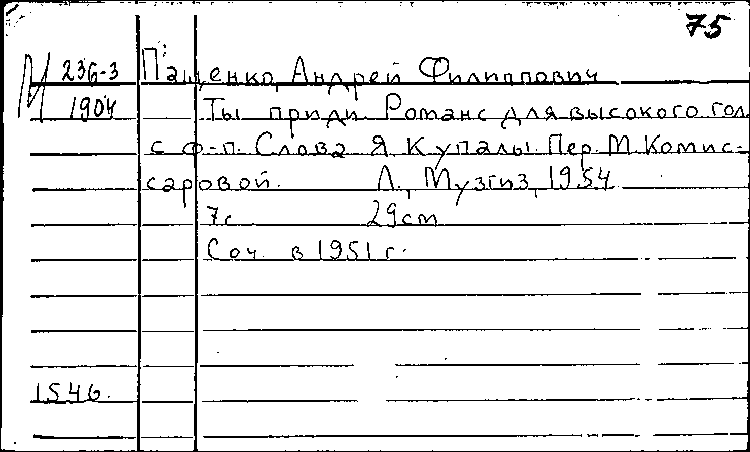 75
М 236-3 Пащенко, Андрей Филиппович
1904 Ты приди. Романс для высокого гол.
с ф-п. Слова Я. Купалы. Пер. М. Комис-
саровой. Л., Музгиз, 1954
7с. 29cm
Соч. в 1951 г.
1546.